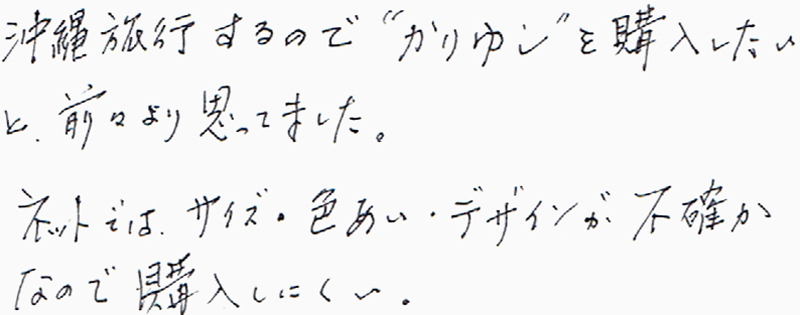 沖縄旅行するので“かりゆし”を購入したい
と、前々より思ってました。
ネットでは、サイズ・色あい・デザインが不確か
なので購入しにくい。